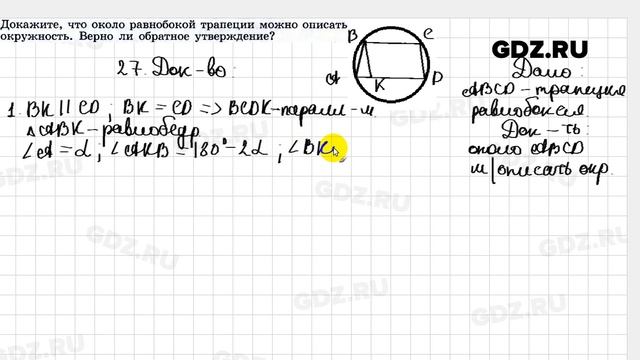 Докажите, что около равнобокой трапеции можно описать
окружность. Верно ли обратное утверждение?
GDZ.RU
27. Док-во:
B C
A K D
Дано:
ABCD – трапеция
равнобокая.
Док-ть:
около ABCD
м|описать окр.
1. BK || CD ; BK = CD => BCDK – паралл-м.
△ABK – равнобедр.
∠A = α ; ∠AKB = 180° – 2α ; ∠BK